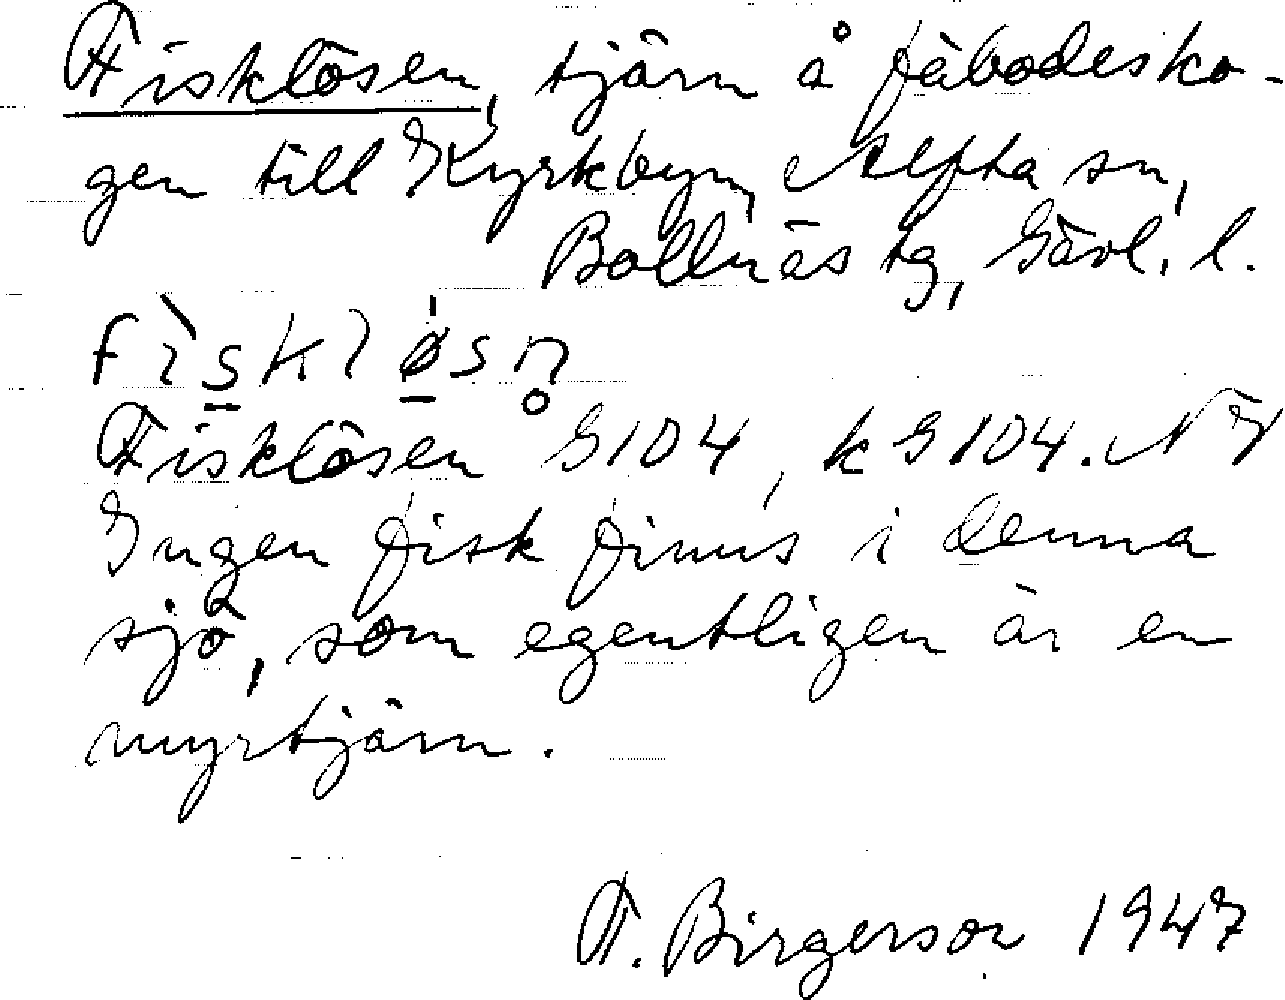 Fisklösen, tjärn å fäbodesko-
gen till Kyrkbyn, Alfta sn,
Bollnäs tg, Gävl. l.
fìskløsn̥
Fisklösen G104, kG104. NV
Ingen fisk finns i denna
sjö, som egentligen är en
myrtjärn.
F. Birgerson 1947